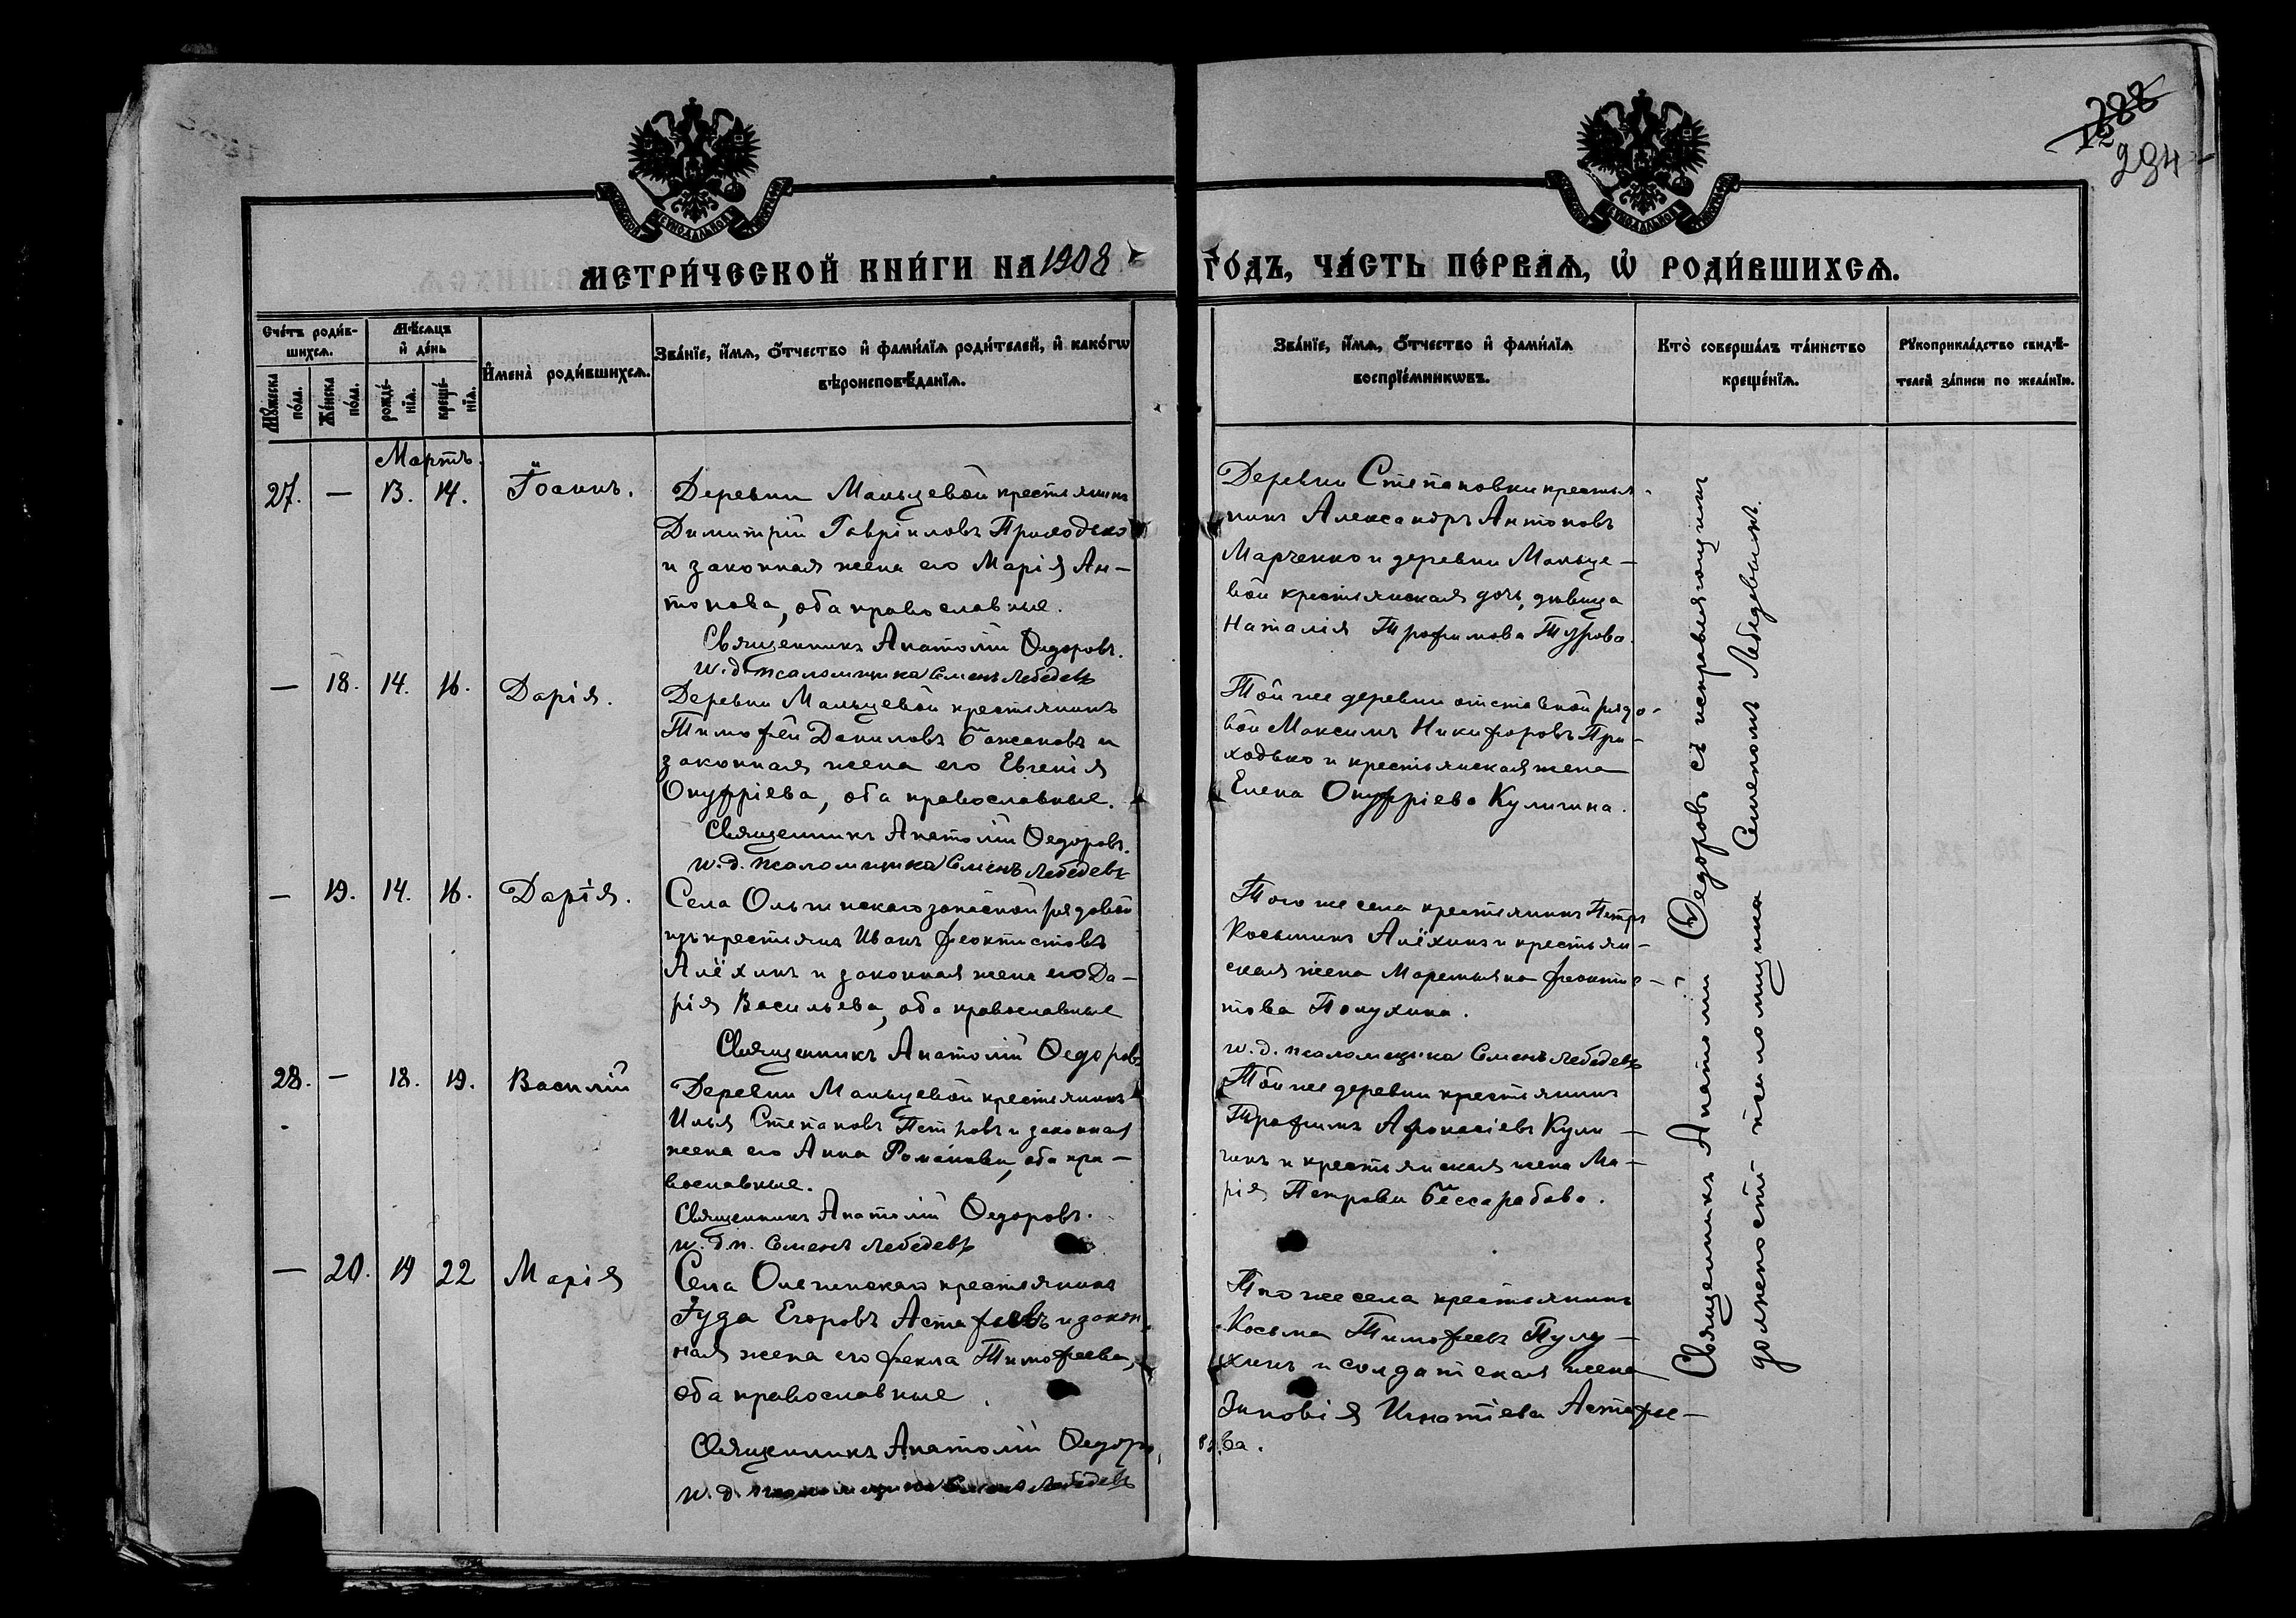 288
12
294
МЕТРИ́ЧЕСКОЙ КНИ́ГИ НА 1908
ГО́ДЪ, ЧА́СТЬ ПЕ́РВАѦ, Ѽ РОДИ́ВШИХСѦ.
Сче́тъ роди́в-
шихсѧ.
Мꙋ́жеска
по́ла.
Же́нска
по́ла.
Мѣ́сѧцъ
и҆ де́нь
рожде́-
нїѧ.
креще́-
нїѧ.
И҆мена̀ роди́вшихсѧ.
Зва́нїе, и҆́мѧ, о҆́тчество и҆ фами́лїѧ роди́телей, и҆ како́гѡ
вѣроисповѣ́данїѧ.
Зва́нїе, и҆́мѧ, о҆́тчество и҆ фами́лїѧ
воспрїе́мникѡвъ.
Кто̀ соверша́лъ та́инство
креще́нїѧ.
Рꙋкоприкла́дство свидѣ́-
телей за́писи по жела́нїю.
Мартъ.
27. — 13. 14. Іоаннъ.
Деревни Мальцевой крестьянинъ
Димитрій Гавріиловъ Приходько
и законная жена его Марія Ан-
тонова, оба православные.
Священникъ Анатолій Ѳедоровъ.
и. д. псаломщика Семенъ Лебедевъ
Деревни Степановки крестья-
нинъ Александръ Антоновъ
Марченко и деревни Мальце-
вой крестьянская дочь, дѣвица
Наталія Трофимова Турова.
— 18. 14. 16. Дарія.
Деревни Мальцевой крестьянинъ
Тимофей Даниловъ Бажановъ и
законная жена его Евгенія
Онуфріева, оба православные.
Священникъ Анатолій Ѳедоровъ.
и. д. псаломщика Семенъ Лебедевъ
Той же деревни отставной рядо-
вой Максимъ Никифоровъ При-
ходько и крестьянская жена
Елена Онуфріева Куличина.
— 19. 14. 16. Дарія.
Села Ольгинскаго запасной рядовой
изъ крестьянъ Иванъ Феоктистовъ
Алёхинъ и законная жена его Да-
рія Васильева, оба православные
Священникъ Анатолій Ѳедоровъ
Того же села крестьянинъ Петръ
Косьминъ Алёхинъ и крестьян-
ская жена Маремьяна Феоктис-
това Полухина.
и. д. псаломщика Семенъ Лебедевъ
28. — 18. 19. Василій
Деревни Мальцевой крестьянинъ
Илья Степановъ Петровъ и законная
жена его Анна Романова, оба пра-
вославные.
Священникъ Анатолій Ѳедоровъ.
и. д. п. Семенъ Лебедевъ
Той же деревни крестьянинъ
Трофимъ Афонасіевъ Кули-
чинъ и крестьянская жена Ма-
рія Петрова Бессарабова.
— 20. 19 22 Марія
Села Ольгинскаго крестьянинъ
Іуда Егоровъ Астафьевъ и закон-
ная жена его Фекла Тимофеева,
оба православные.
Священникъ Анатолій Ѳедоро
и. д. псаломщика Семенъ Лебедевъ
Того же села крестьянинъ
Косьма Тимофеевъ Полу-
хинъ и солдатская жена
Зиновія Игнатіева Астафье-
ва.
Священникъ Анатолій Ѳедоровъ съ исправляющимъ
должность псаломщика Семеномъ Лебедевымъ.